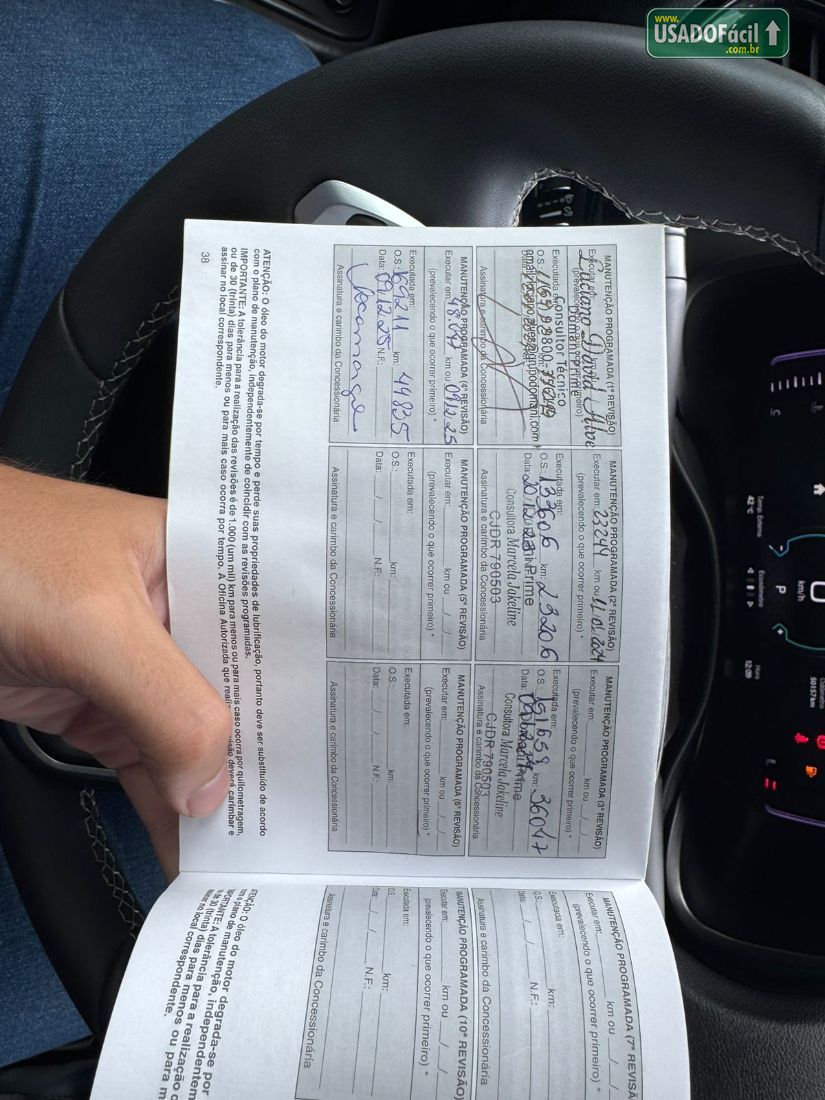 www.
USADOFácil
.com.br
MANUTENÇÃO PROGRAMADA (1ª REVISÃO)
Executar em:
(prevalecendo o que ocorrer primeiro)
Domani Prime
Consultor Técnico
Executada em:
O.S.:
Assinatura e carimbo da Concessionária
MANUTENÇÃO PROGRAMADA (2ª REVISÃO)
Executar em: 23244 km ou 11/01/2024
(prevalecendo o que ocorrer primeiro) *
Executada em:
O.S.: 133606 km: 23206
Data: 20/12/23
Consultora Marcela Jakeline
CJDR 790503
Assinatura e carimbo da Concessionária
MANUTENÇÃO PROGRAMADA (3ª REVISÃO)
Executar em: km ou / /
(prevalecendo o que ocorrer primeiro) *
Executada em:
O.S.: 151659 km: 36047
Data:
Consultora Marcela Jakeline
CJDR 790503
Assinatura e carimbo da Concessionária
MANUTENÇÃO PROGRAMADA (4ª REVISÃO)
Executar em: 48.047 km ou 09/12/25
(prevalecendo o que ocorrer primeiro) *
Executada em:
O.S.: 169211 km: 49835
Data: 09.12.25 N.F.:
Assinatura e carimbo da Concessionária
MANUTENÇÃO PROGRAMADA (5ª REVISÃO)
Executar em: km ou / /
(prevalecendo o que ocorrer primeiro) *
Executada em:
O.S.: km:
Data: / / N.F.:
Assinatura e carimbo da Concessionária
MANUTENÇÃO PROGRAMADA (6ª REVISÃO)
Executar em: km ou / /
(prevalecendo o que ocorrer primeiro) *
Executada em:
O.S.: km:
Data: / / N.F.:
Assinatura e carimbo da Concessionária
ATENÇÃO: O óleo do motor degrada-se por tempo e perde suas propriedades de lubrificação, portanto deve ser substituído de acordo
com o plano de manutenção, independentemente de coincidir com as revisões programadas.
IMPORTANTE: A tolerância para a realização das revisões é de 1.000 (um mil) km para menos ou para mais caso ocorra por quilometragem,
ou de 30 (trinta) dias para menos ou para mais caso ocorra por tempo. A Oficina Autorizada que deverá carimbar e
assinar no local correspondente.
38
MANUTENÇÃO PROGRAMADA (7ª REVISÃ
Executar em: km ou / /
(prevalecendo o que ocorrer primeiro) *
Executada em:
O.S.: km:
Data: / / N.F.:
Assinatura e carimbo da Concessionária
MANUTENÇÃO PROGRAMADA (10ª REVISÃO)
Executar em: km ou / /
(prevalecendo o que ocorrer primeiro) *
Executada em:
O.S.: km:
Data: / / N.F.:
Assinatura e carimbo da Concessionária
O óleo do motor degrada-se por
plano de manutenção, independentem
A tolerância para a realização
(trinta) dias para menos ou para m
local correspondente.
Temp. Externa
42°C
Econômetro
km/h
P
Odômetro
50157 km
Hora
12:09
C
E